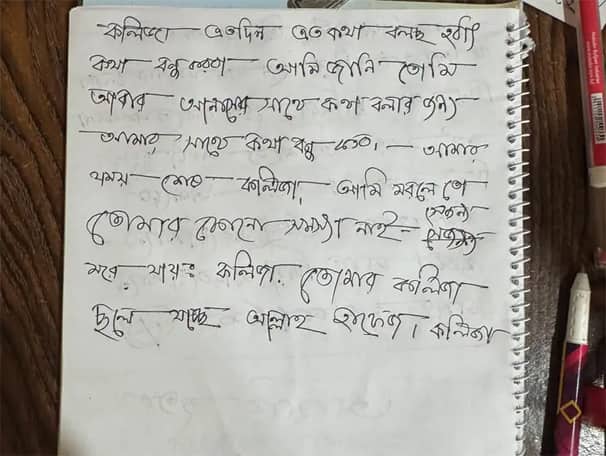 কলিজা এতদিন এত কথা বলছ হঠাৎ
কথা বন্ধ করবা আমি জানি তোমি
আবার আনাসের সাথে কথা বলার জন্য
আমার সাথে কথা বন্ধ করবা। আমার
সময় শেষ কলিজা, আমি মরলে তো
তোমার কোনো সমস্যা নাই- সেজন্য
মরে যায়ঃ কলিজা. তোমার কলিজা
চলে যাচ্ছে আল্লাহ হাফেজ। কলিজা